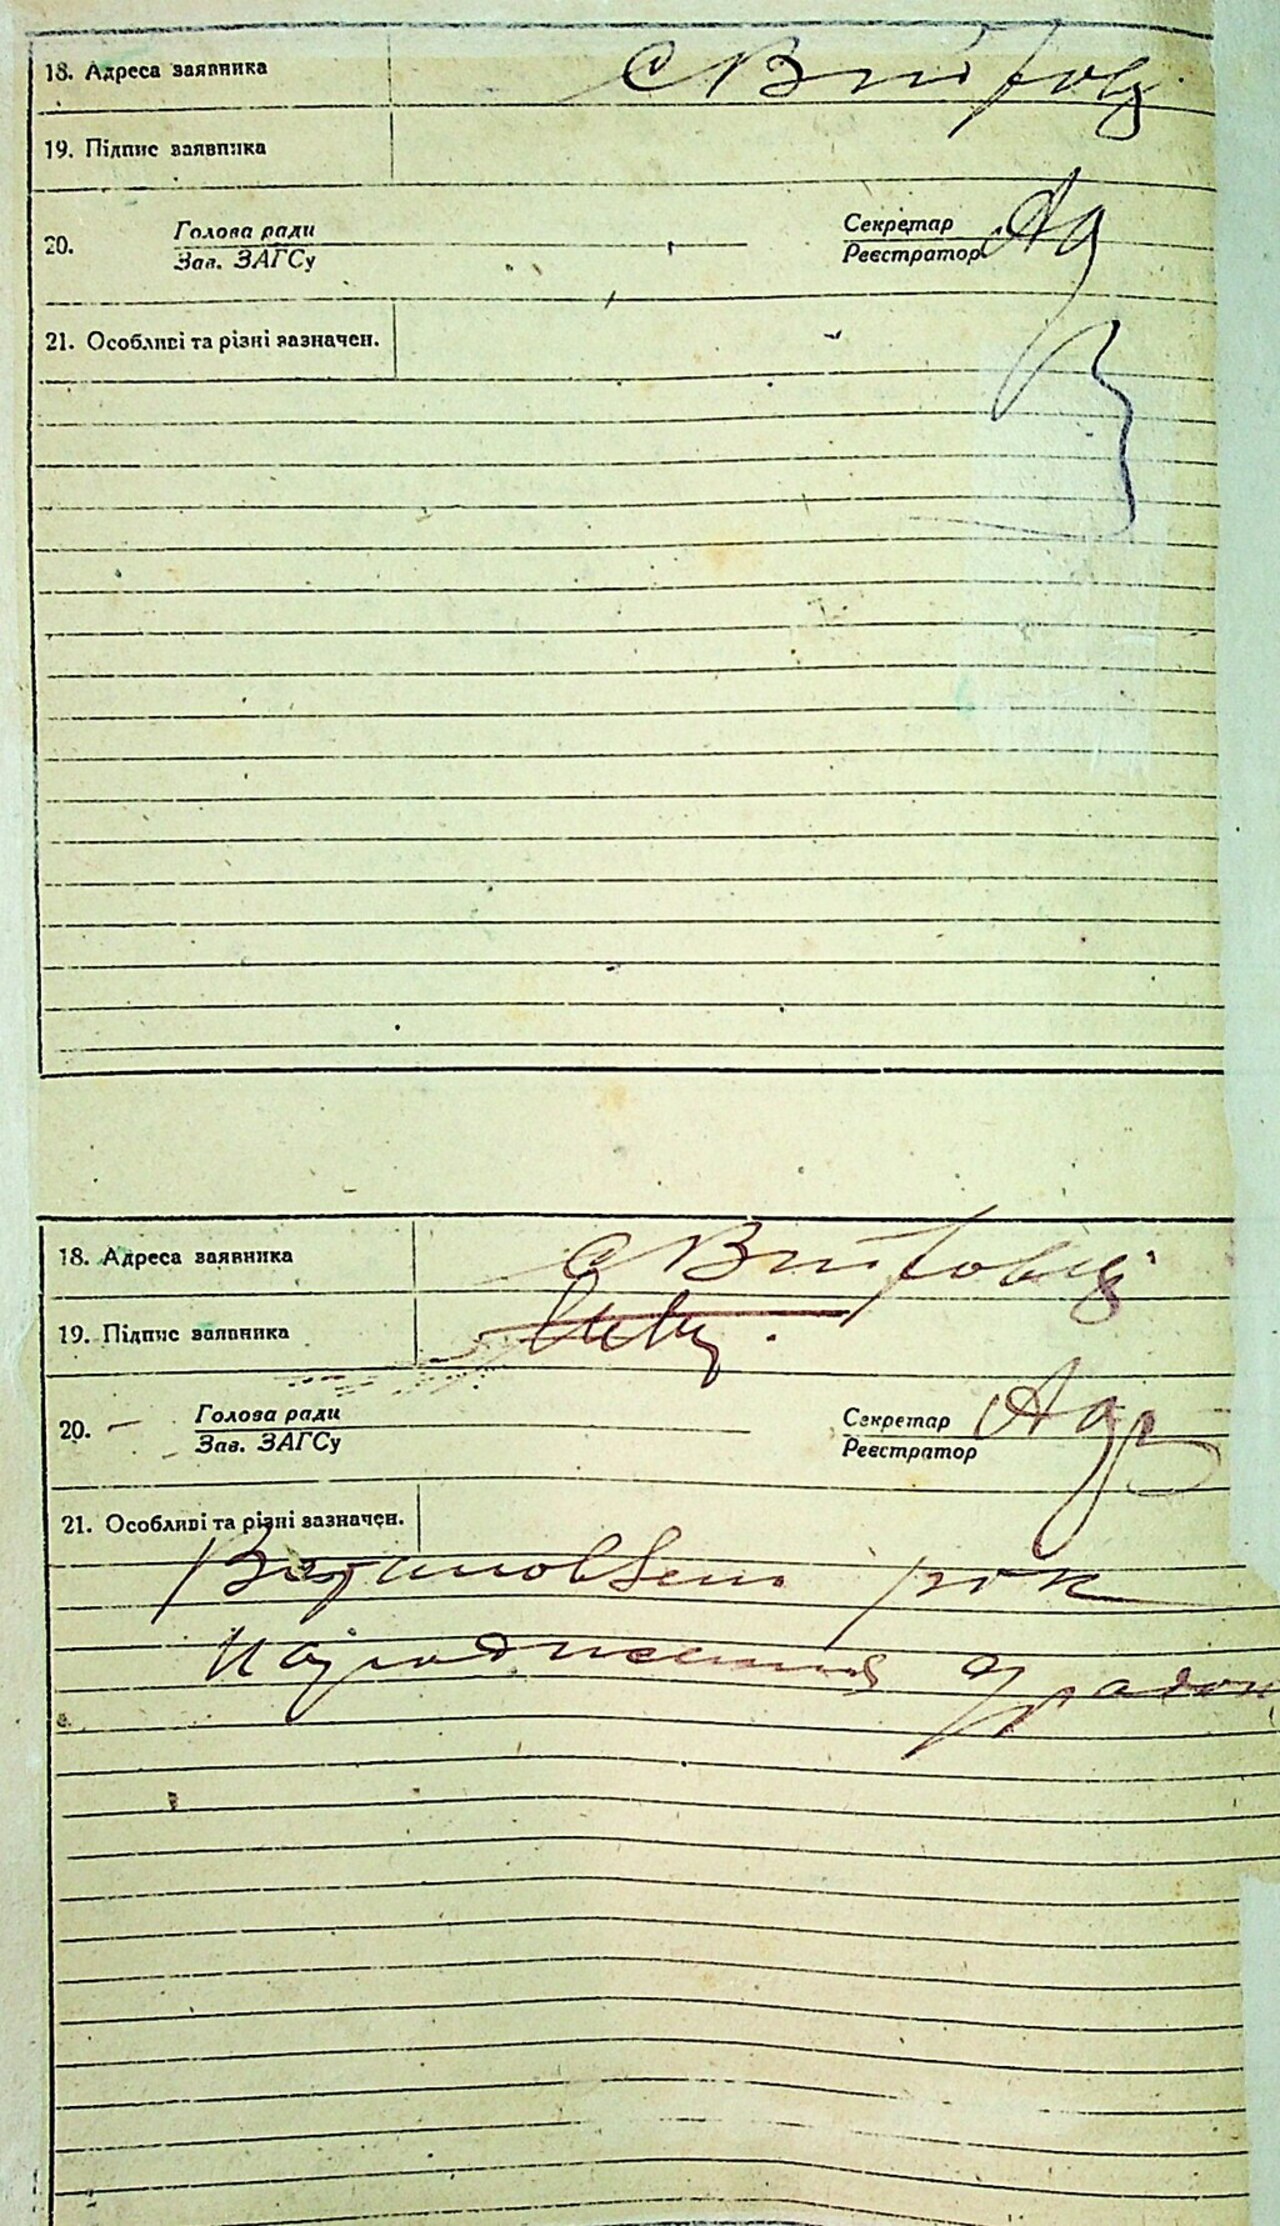 18. Адреса заявника с Війтовці
19. Підпис заявника
20. Голова ради Секретар
Зав. ЗАГСу Реєстратор
21. Особливі та різні зазначен.
18. Адреса заявника с Війтовці
19. Підпис заявника
20. Голова ради Секретар
Зав. ЗАГСу Реєстратор
21. Особливі та різні зазначен.
Встановлено рік
народження